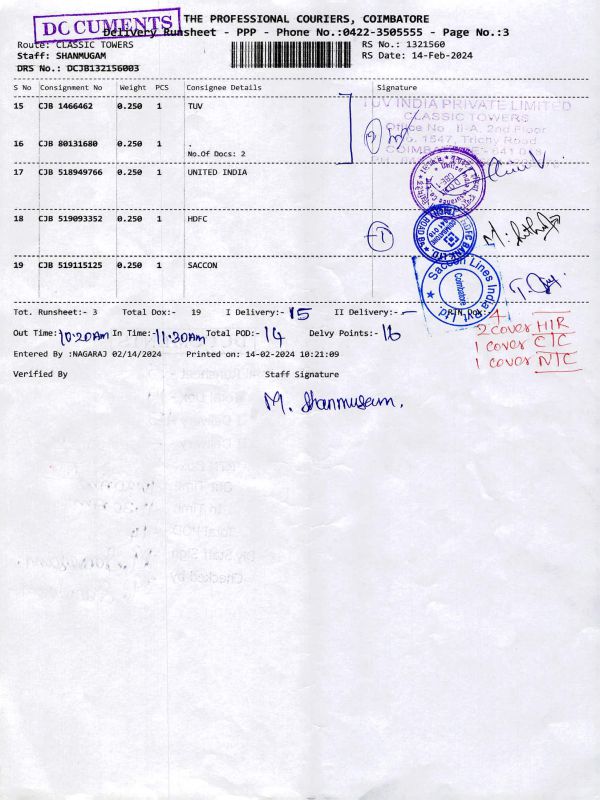 DOCUMENTS
THE PROFESSIONAL COURIERS, COIMBATORE
Delivery Runsheet - PPP - Phone No.:0422-3505555 - Page No.:3
Route: CLASSIC TOWERS
RS No.: 1321560
Staff: SHANMUGAM
RS Date: 14-Feb-2024
DRS No.: DCJB132156003
S No Consignment No Weight PCS Consignee Details Signature
15 CJB 1466462 0.250 1 TUV
TUV INDIA PRIVATE LIMITED
CLASSIC TOWERS
Office No. II-A, 2nd Floor
No. 1547, Trichy Road
16 CJB 80131680 0.250 1 .
No.Of Docs: 2
17 CJB 518949766 0.250 1 UNITED INDIA
18 CJB 519093352 0.250 1 HDFC
HDFC BANK LTD
19 CJB 519115125 0.250 1 SACCON
Saccon Lines India Pvt. Ltd.
Coimbatore
Tot. Runsheet:- 3 Total Dox:- 19 I Delivery:- 15 II Delivery:- — RTN Dox:- 4
Out Time: 10:20AM In Time:- 11:30AM Total POD:- 14 Delvy Points:- 16
2 cover HIR
1 cover CTC
1 cover NTC
Entered By :NAGARAJ 02/14/2024 Printed on: 14-02-2024 10:21:09
Verified By Staff Signature
M. Shanmugam.